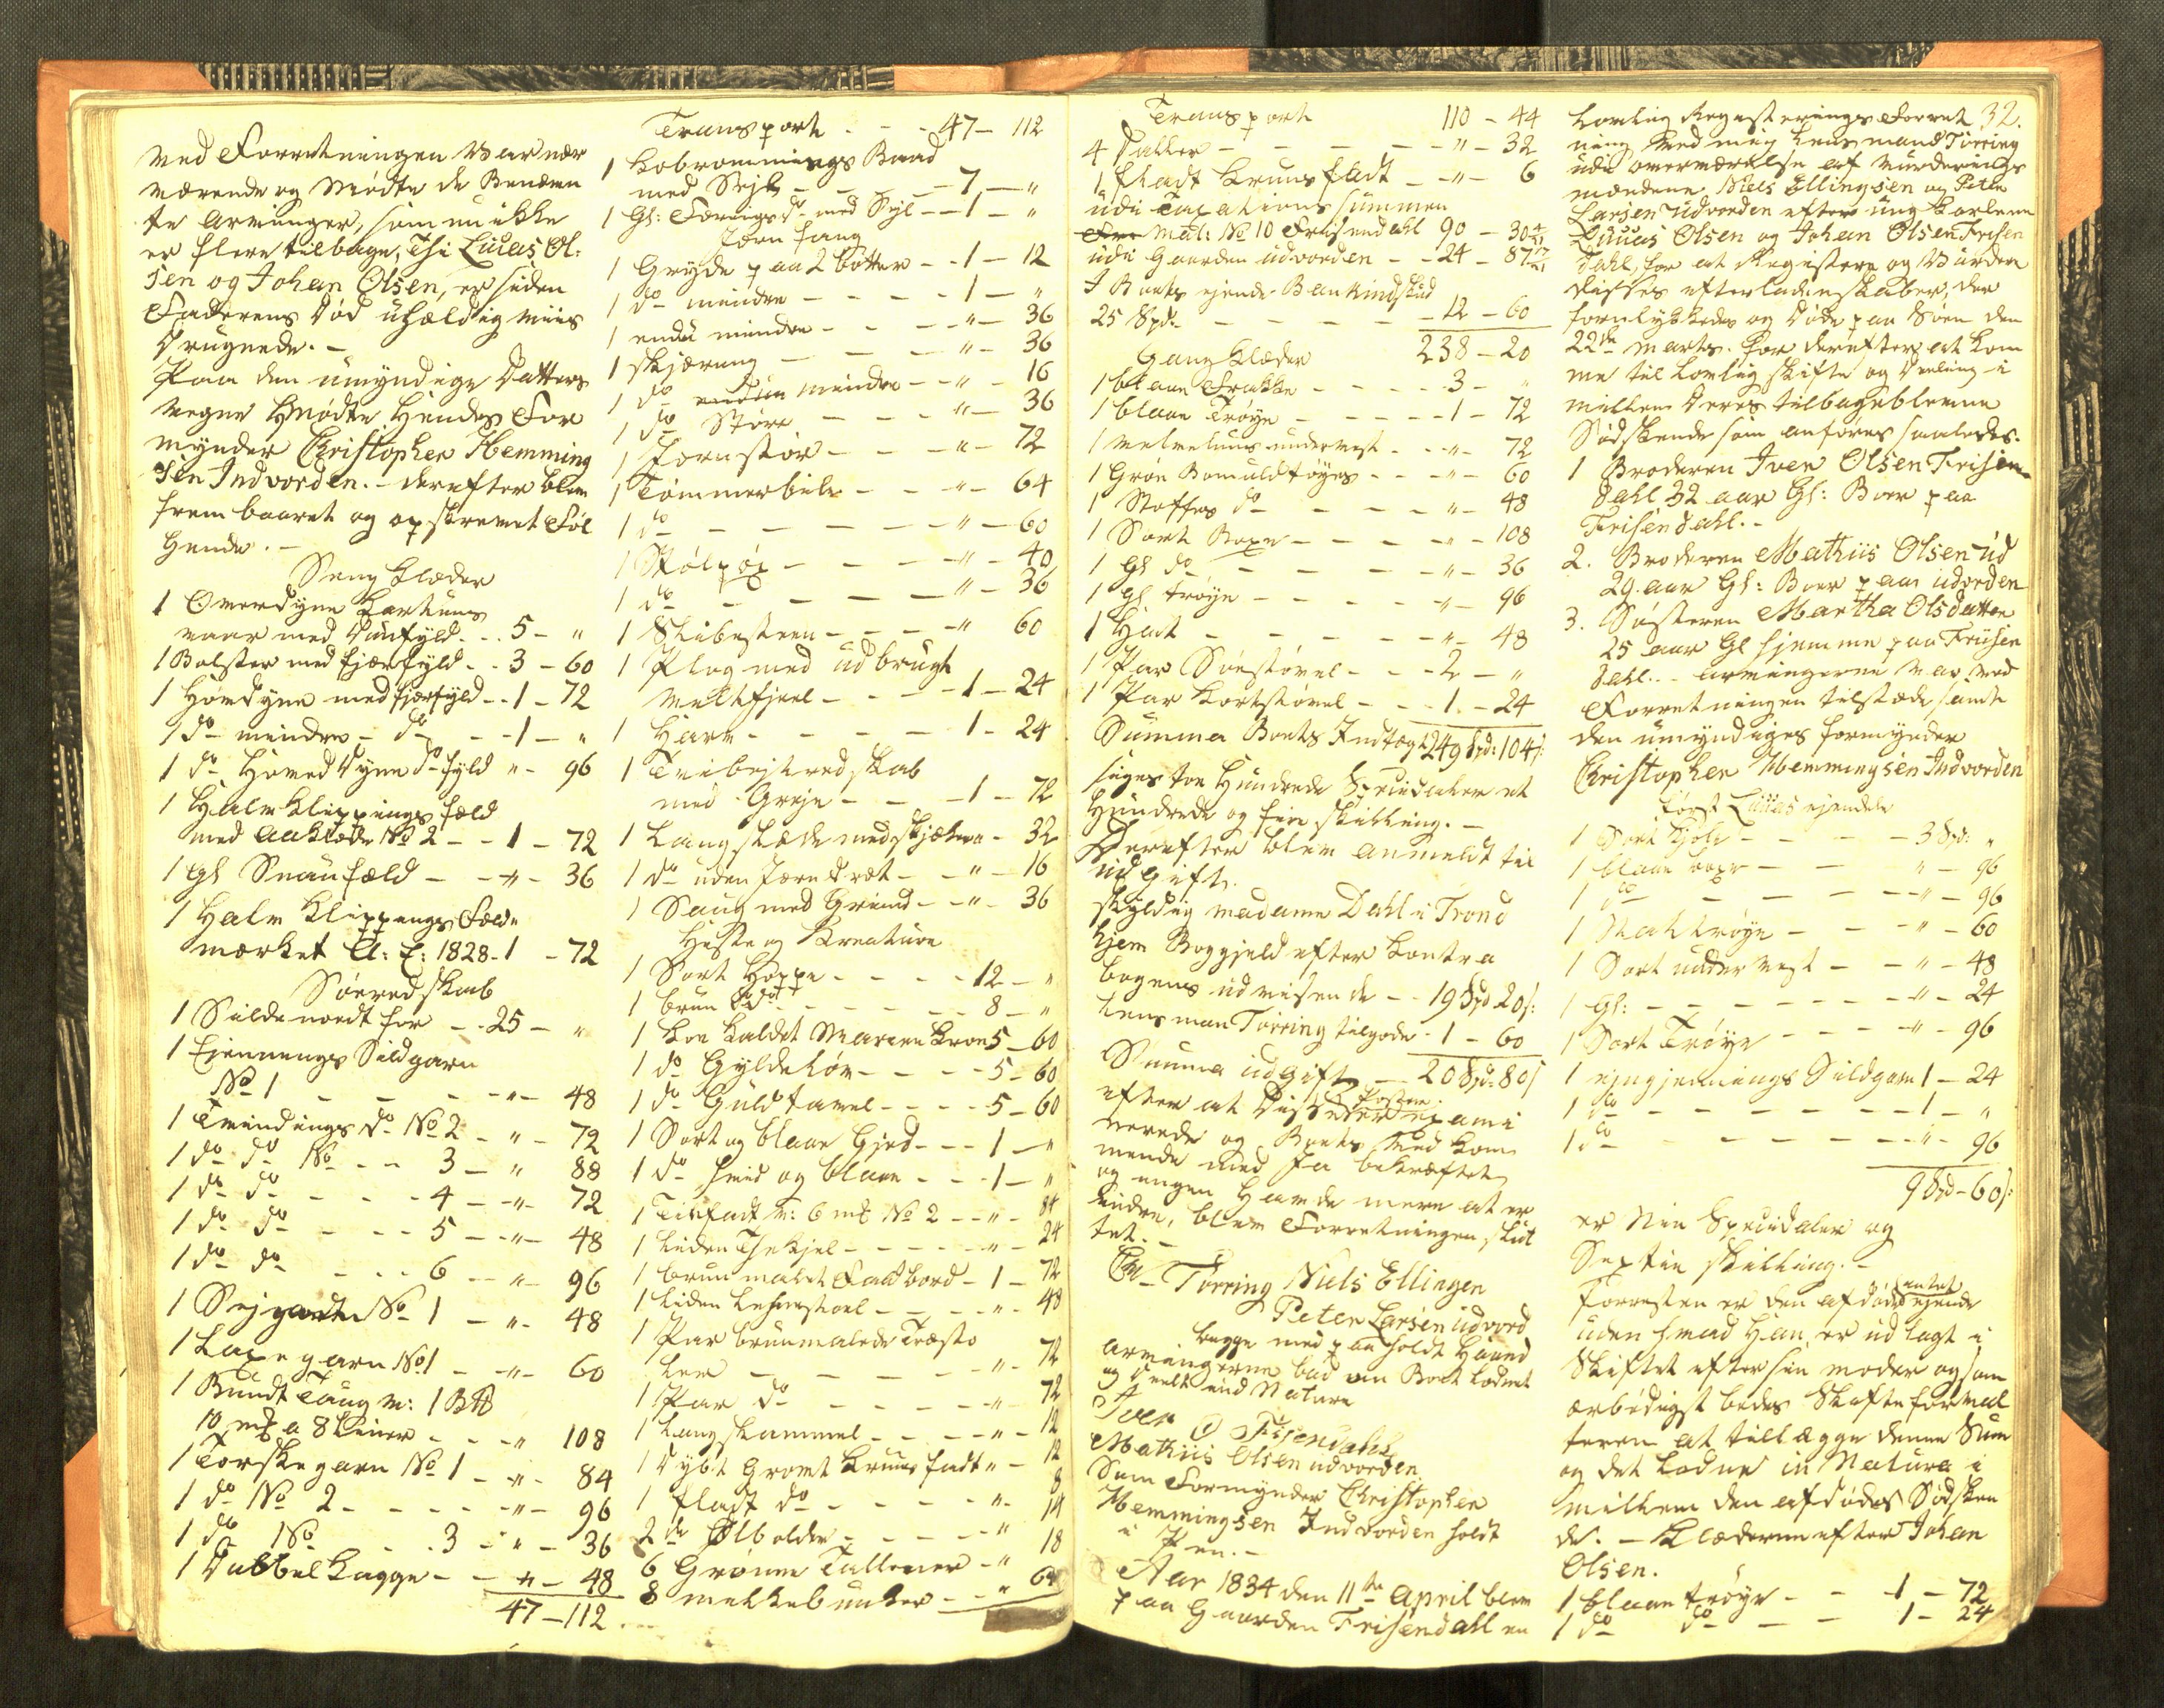 Ved Forretningen Var nær
værende og Mødte de Benævn
te Arvinger, som nu ikke
er flere tilbage, Thi Lucas Ol:
sen og Johan Olsen, er siden
Faderens Død uheldig viis
Drugnede. –
Paa den umyndige Datters
vegne Mødte Hendes For
mynder Christopher Hemming
sen Indvorden. – derefter blev
frembaaret og opskrevet Føl
gende. –
Seng Klæder
1 Overdyne Kartuns
vaar med Dunfyld - - 5 - "
1 Bolster med fjærfyld - - 3 - 60
1 Hovdyne med fjærfyld - - 1 - 72
1 do mindre - do - - 1 - "
1 do Hoved Dyne do fyld " - 96
1 Halv Klippings fæld
med Aaklæde No 2 - - 1 - 72
1 Gl Snaufæld - - " - 36
1 Halv Klippengs Fæld
mærket A: E: 1828 - 1 - 72
Søeredskab
1 Silde noedt for - - 25 - "
1 Sildgarn
No 1 - - - " - 48
1 Tvindings do No 2 - " - 72
1 do do No - - 3 - " 88
1 do do - - - 4 - " - 72
1 do do - - - 5 - " - 48
1 do do - - - 6 - " - 96
1 Sejgarn No 1 - " - 48
1 Laxe garn No 1 - " - 60
1 Bundt Taug v: 1 B℔
10 mk a 8 Liner - - - " 108
1 Torskegarn No 1 - " - 84
1 do No 2 - - - - " - 96
1 do No - - 3 - " - 36
1 Dubbel Kagge - - " - 48
47 - 112
Transport - - - 47 - 112
1 Kobrommings Baad
med Sejl - - - 7 - "
1 Gl: Færings do med Sejl - - 1 - "
Jern fang
1 Gryde paa 2 Potter - - 1 - 12
1 do mindre - - - - 1 - "
1 endu mindre - - - " - 36
1 Skjæreng - - - " - 36
1 do mindre - - " - 16
1 do Større - - - " - 36
1 Jernstør - - - " - 72
1 Tømmerbile - - " - 64
1 do - - - - " - 60
1 Stølpøx - - - " - 40
1 do - - - - " - 36
1 Slibesteen - - - " 60
1 Plog med udbrugt
Veltfjeel - - - 1 - 24
1 Harv - - - - 1 - 24
1 Tvibejtredskab
med Greje - - - 1 - 72
1 Langslæde med Skjækre " - 32
1 do uden Jerndræt - - " - 16
1 Saug med Grind - - " - 36
Heste og Kreature
1 Sort Hoppe - - - - 12 - "
1 brun do - - - - 8 - "
1 Koe Kaldet Maren Krone 5 - 60
1 do Gyldehov - - - 5 - 60
1 do Guldtavel - - - 5 - 60
1 Sort og blaae Gjed - - - 1 - "
1 do hvid og blaae - - - 1 - "
1 Tinfadt v: 6 mk No 2 - - " - 84
1 Liden Thekjel - - - - " - 24
1 brun malet Fadbord - 1 - 72
1 Liden Lehnestoel - - - " - 48
1 Par brunmalede Træsto
ler - - - - - " - 72
1 Par do - - - - - " 72
1 Langskammel - - - - " - 12
1 Dybt Gromt Kruus fadt " - 12
1 fladt do - - - - " - 8
2 do Ølbolder - - - - " 14
6 Grønne Tallerner - " 18
8 melkebunker - - " 64
Transport 110 - 44
4 Daller - - - - - " - 32
1 fladt Kruusfadt - " - 6
udi Taxations Summen
Mat: No 10 Friisendahl 90 - 30
udi Gaarden udvorden - - 24 - 87
I Boets ejende Bankindskud
25 Spd: - - - - - 12 - 60
238 - 20
Gang Klæder
1 blaae Frakke - - - - 3 - "
1 blaae Trøye - - - - - 1 - 72
1 Velveluns undervest - - " - 72
1 Grøn Bomuldtøyes - - - " - 60
1 Stoffes do - - - - " - 48
1 Sort Boxe - - - - " - 108
1 Gl do - - - - - " - 36
1 Gl trøye - - - - " - 96
1 Hat - - - - - " - 48
1 Par Søestøvel - - - 2 - "
1 Par Kortstøvel - - - 1 - 24
Summa Boets Indtægt 249 Spd: 104 s:
siger toe Hundrede Speciedaler et
Hundrede og fire skilling. –
Derefter blev anmeldt til
udgift.
skyldig Madame Dahl i Trond
hjem Boggjeld efter Kontra
bogens udvisende - - 19 Spd 20 s:
Lensman Tørring tilgode - 1 - 60
Summa udgift - 20 Spd: 80 s
efter at Disse Poster exami
nerede og Boets Vedkom
mende med Ja bekræftet
og ingen Havde mere at er
indre, blev Forretningen slut
tet. –
Chr Tørring Niels Ellingen
Peter Larsen udvord
begge med paaholdt Haand
Arvingerne bad om Boet Lodnet
og deelt ind Nature
Iver O Friisendahl
Mathiis Olsen udvorden
Som Formynder Christopher
Hemmingsen Indvorden holdt
i Pen. –
Aar 1834 den 11te April blev
paa Gaarden Friisendahl en
32.
Lovlig Registerings Forret
ning Ved mig Lensmand Tørring
udi overværelse af Vurderings
mændene Niels Ellingsen og Peter
Larsen udvorden efter ung Karlene
Lucas Olsen og Johan Olsen Frisen
dahl, for at Registere og Vurdere
disses efterladenskaber, der
forulykkedes og Døde paa Søen den
22de Marts. for derefter at kom
me til Lovlig skifte og Deeling i
mellem deres tilbageblevne
Sødskende som anføres saaledes.
1 Broderen Iver Olsen Frisen
dahl 32 aar Gl: Boer paa
Frisendahl. –
2. Broderen Mathiis Olsen ud
29. aar Gl: Boer paa udvorden
3. Søsteren Martha Olsdatter
25 aar Gl hjemme paa Friisen
dahl. – Arvingerne var ved
Forretningen tilstæde samt
den umyndiges formynder
Christopher Hemmingsen Indvorden
Først Lucas ejendele
1 Sort Kjole - - - - 3 Spd: "
1 blaae boxe - - - " - 96
1 do - - - - - " - 96
1 trøye - - - " - 60
1 Sort undervest - - " - 48
1 Gl: - - - - - - " - 24
1 Sort Trøye - - - - " - 96
1 Sildgarn 1 - 24
1 do - - - - - - - 1 - "
1 do - - - - - - " - 96
9 Spd - 60 s:
er Nie Speciedaler og
Sextie skilling. –
Forresten er den afdøde intet ejende
uden hvad Han er udlagt i
Skiftet efter sin moder og som
ærbødigst bedes Skifteforval
teren at tillægge denne Sum
og det Lodne in Natura i
mellem den afdødes Sødsken
de. – Klæderne efter Johan
Olsen.
1 blaae trøye - - - 1 - 72
1 do do - - - 1 - 24